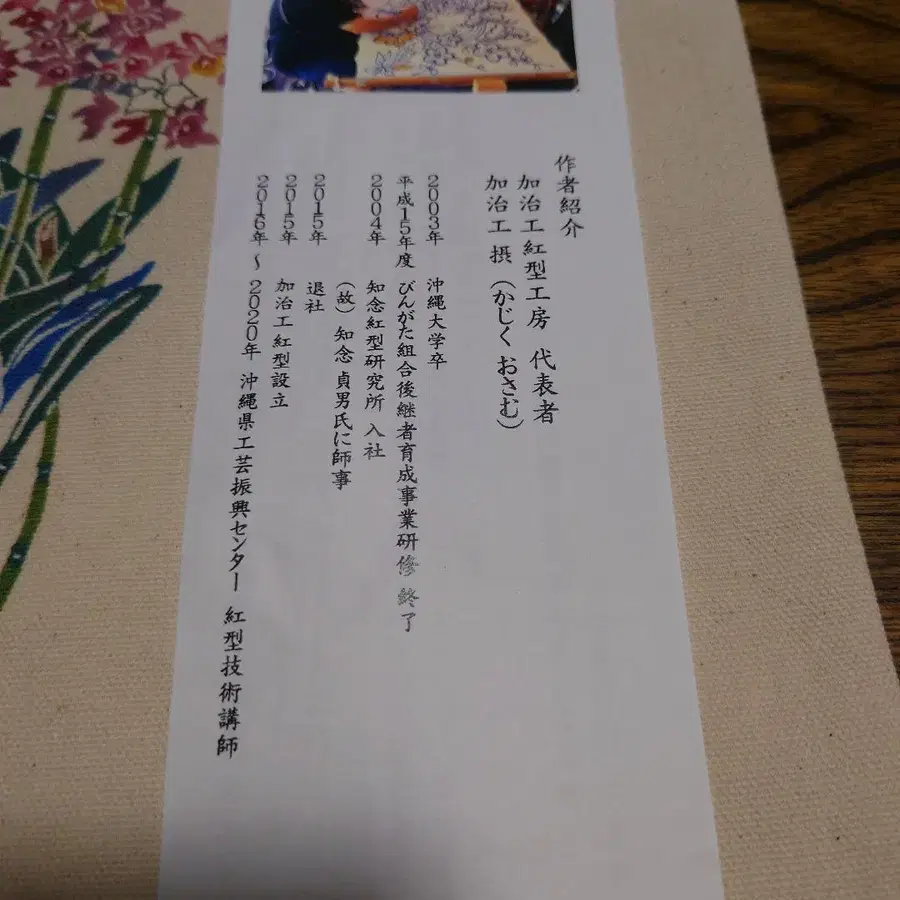 作者紹介
加治工紅型工房 代表者
加治工 摂 (かじく おさむ)
2003年 沖縄大学卒
平成15年度 びんがた組合後継者育成事業研修 終了
2004年 知念紅型研究所 入社
(故) 知念 貞男氏に師事
2015年 退社
2015年 加治工紅型設立
2016年 ~ 2020年 沖縄県工芸振興センター 紅型技術講師